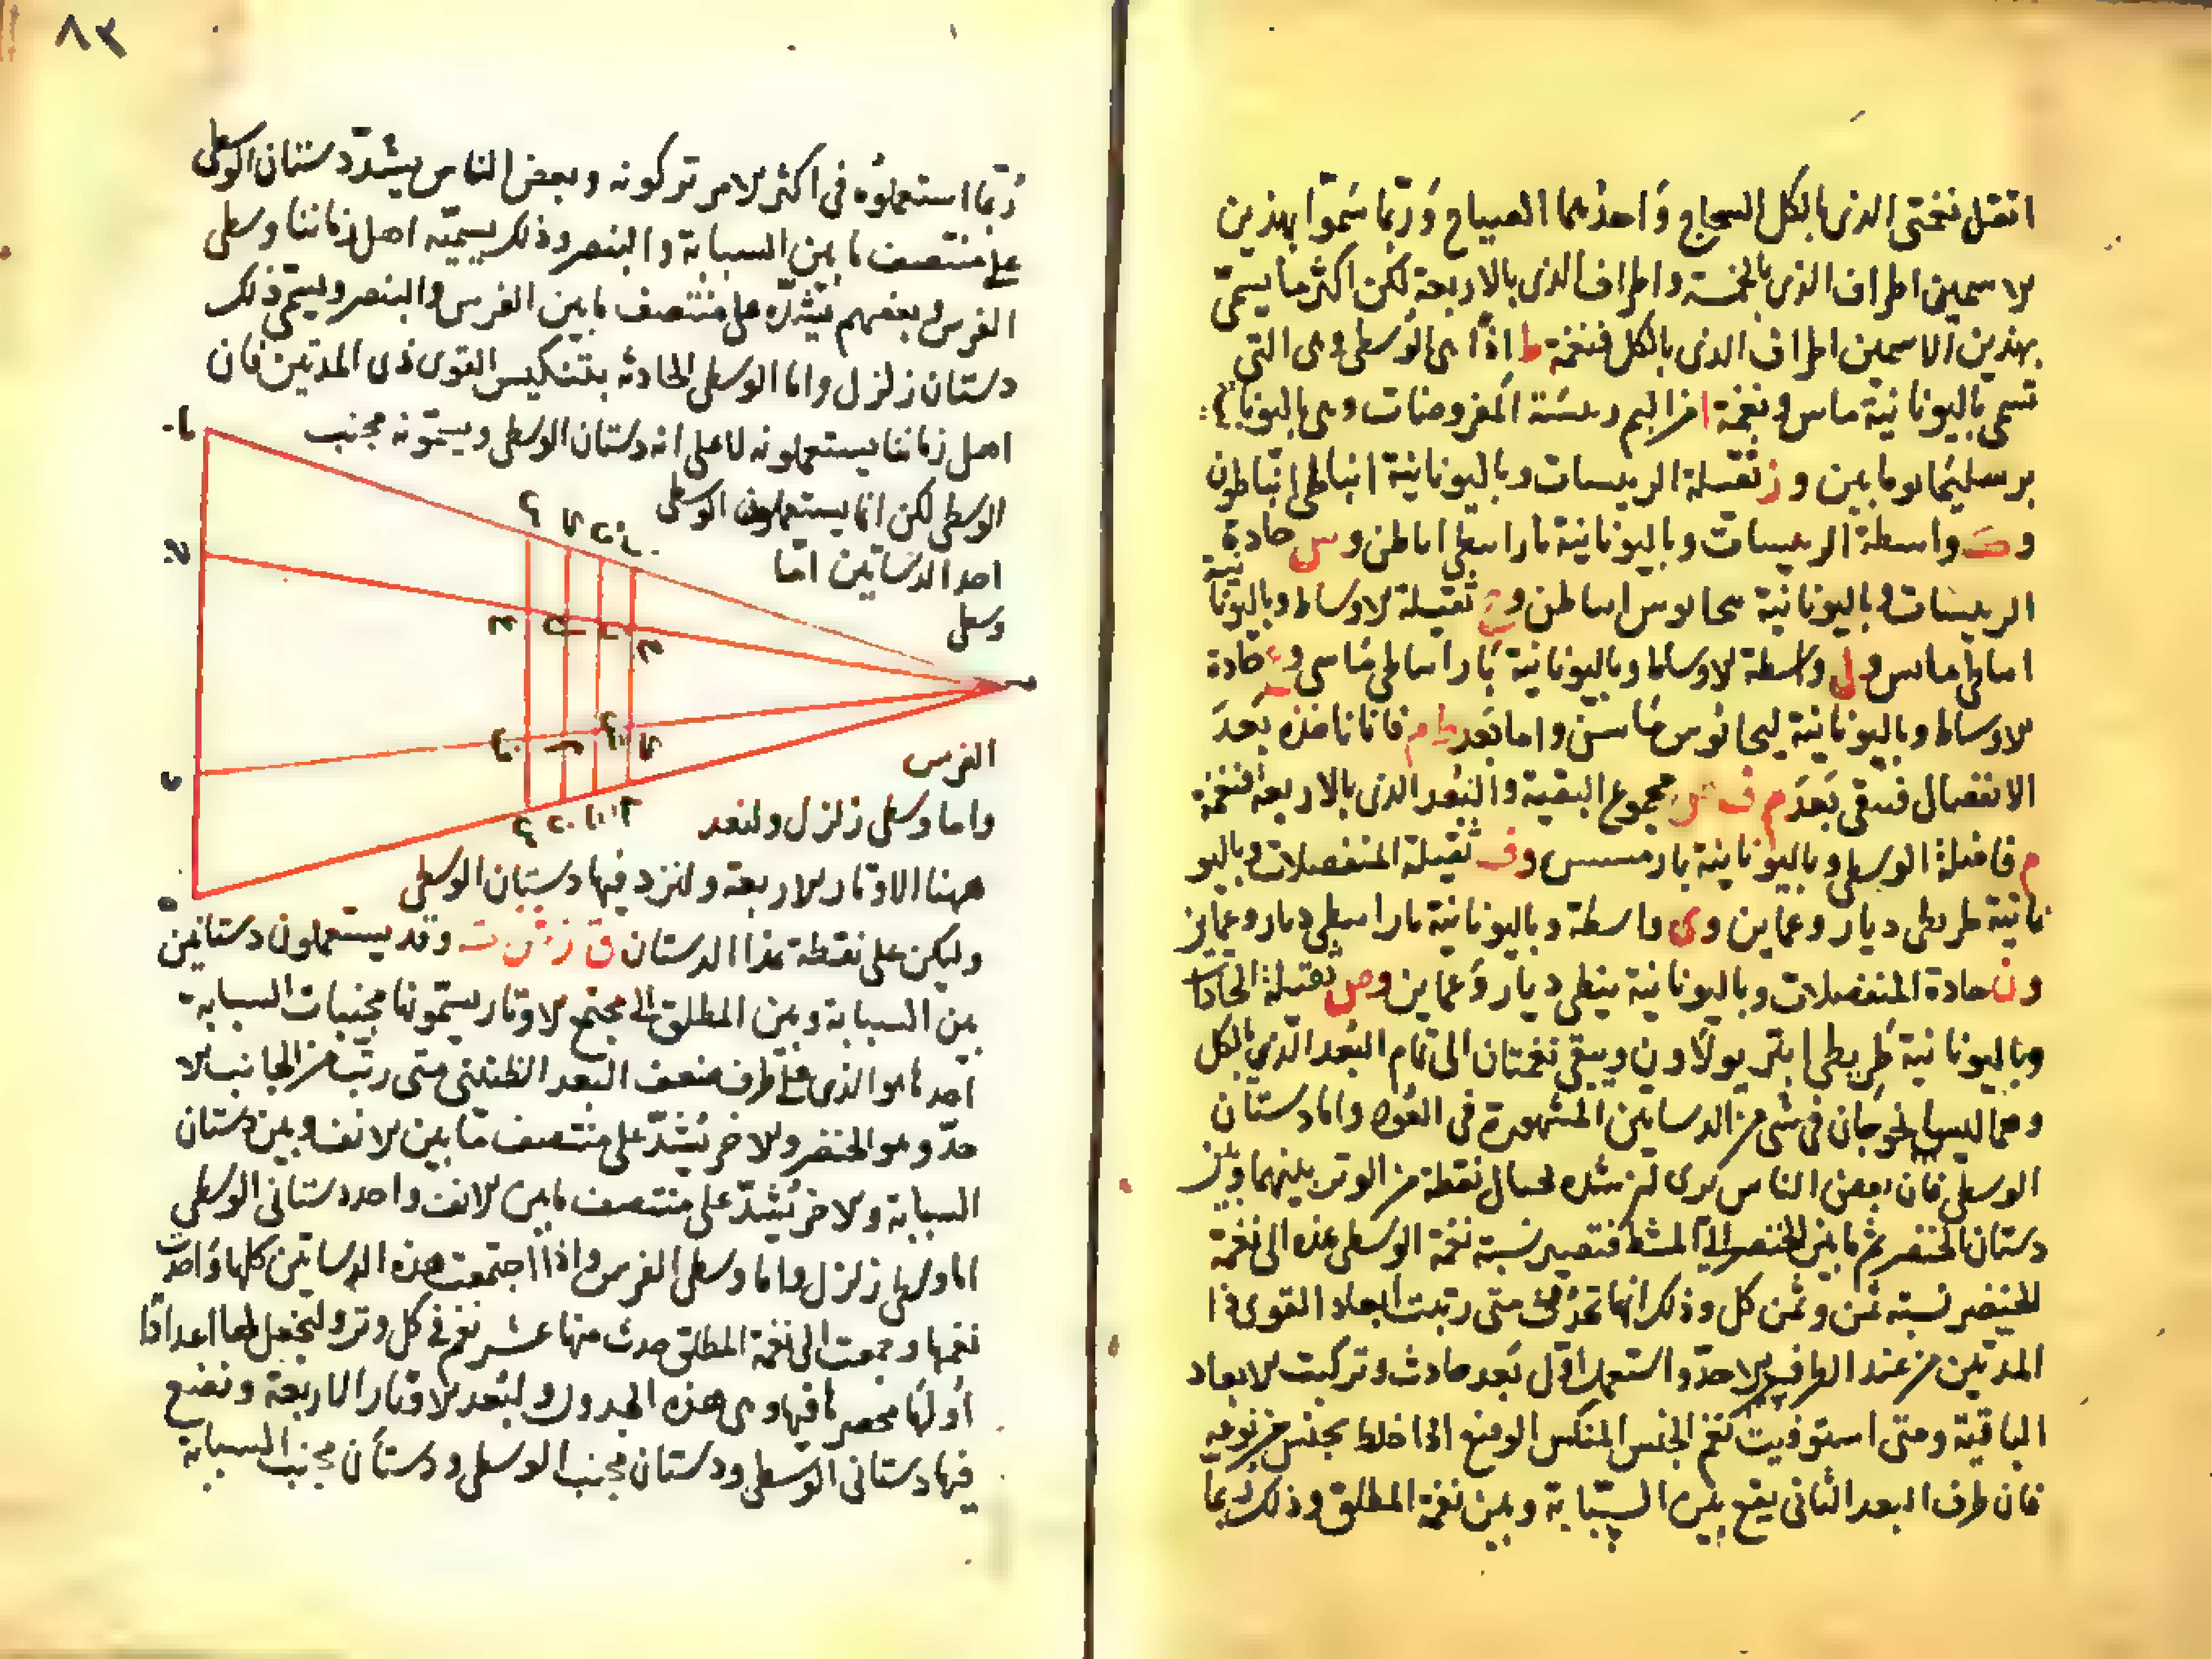 اثقل نغمتي الذي بالكل السجاج واحدهما الصياح وربما سموا بهذين
الاسمين اطراف الذي بالخمسة واطراف الذي بالاربعة لكن اكثر ما يسمى
بهذين الاسمين اطراف الذي بالكل فنغمة ط اذا هي الوسطى وهي التي
تسمى باليونانية ماس ونغمة ا من البم رئيسة المفروضات وهي باليونا
بر سلينمانومابين و ز ثقيلة الرييسات وباليونانية انباطي انباطون
و ح واسطة الرييسات وباليونانية بارانبطي اباطن و س حادة
الرييسات وباليونانية اساطن و ح ثقيلة الاوساط وباليونا نية
اساطي ماسس و ل واسطة الاوساط وباليونانية باراساطي ماسي و ع حادة
الاوساط وباليونانية ليحانوس ماسن واما بعد ط م فانا ناخذه بعد
الانفصال فيبقى بعد م ف مجموع البقية والبعد الذي بالاربعة فنغمة
م فاضلة الوسطى وباليونانية بارمسس و ف ثقيلة المنفصلات وباليو
نانية طريطي ديار وعماين و ي واسطة وباليونانية بارانبطي ديار وعماين
و ن حادة المنفصلات وباليونانية ينطي ديار وعماين و ص ثقيلة الحادا
وباليونانية طريطي ابتر بولاون ويبقى نغمتان الى تمام البعد الذي بالكل
وهما ليسا يخرجان في شي من الدساتين المشهورة في العود واما دستان
الوسطى فان بعض الناس يرى ان يشده بحيال نقطة من الوتر بينهما وبين
دستان الخنصر ثمن ما بين الخنصر الى المشط فتصير نسبة نغمة الوسطى هذه الى نغمة
الخنصر نسبة ثمن وثمن كل وذلك انها تحدث متى رتبت ابعاد القوى ذا
المدتين من عند الطرف الاحد واستعمل اول بعد حادث وتركبت الابعاد
الباقية ومتى استوفيت نغم الجنس المنكس الوضع اذا خلط بجنس من نوعه
فان طرف البعد الثاني يقع بين السبابة وبين نغمة المطلق وذلك ربما
٨٢
ربما استعملوه في اكثر الامر تركونه وبعض الناس يشد دستان الوسطى
على منتصف ما بين السبابة والبنصر وذلك يسميه اهل زماننا وسطى
الفرس وبعضهم يشده على منتصف ما بين الفرس والبنصر ويسمى ذلك
دستان زلزل واما الوسطى الحادثة بتنكيس القوى ذي المدتين فان
اهل زماننا يستعملونه لا على انه دستان الوسطى ويسمونه مجنب
الوسطى لكن انما يستعملون الوسطى
احد الدساتين اما
وسطى
الفرس
واما وسطى زلزل ولنعد
ههنا الاوتار الاربعة ولنزد فيها دستان الوسطى
وليكن على نقطة هذا الدستان ق ز ش ت وقد يستعملون دستانين
بين السبابة وبين المطلق الى مجتمع الاوتار يسمونها مجنبات السبابة
احدهما هو الذي على طرف ضعف البعد الطنيني متى رتب من الجانب الا
حد وهو الخنصر والاخر يشد على منتصف ما بين الانف وبين دستان
السبابة والاخر يشد على منتصف ما بين الانف واحد دستاني الوسطى
اما وسطى زلزل واما وسطى الفرس واذا اجتمعت هذه الدساتين كلها واحدث
نغمها وجمعت الى نغمة المطلق حدث منها عشر نغم في كل وتر ولنجعل لها اعدادا
اولها محصر ما فيها وهي هذه الجدول ولنعد الاوتار الاربعة ونضع
فيها دستاني الوسطى ودستان مجنب الوسطى ودستان مجنب السبابة